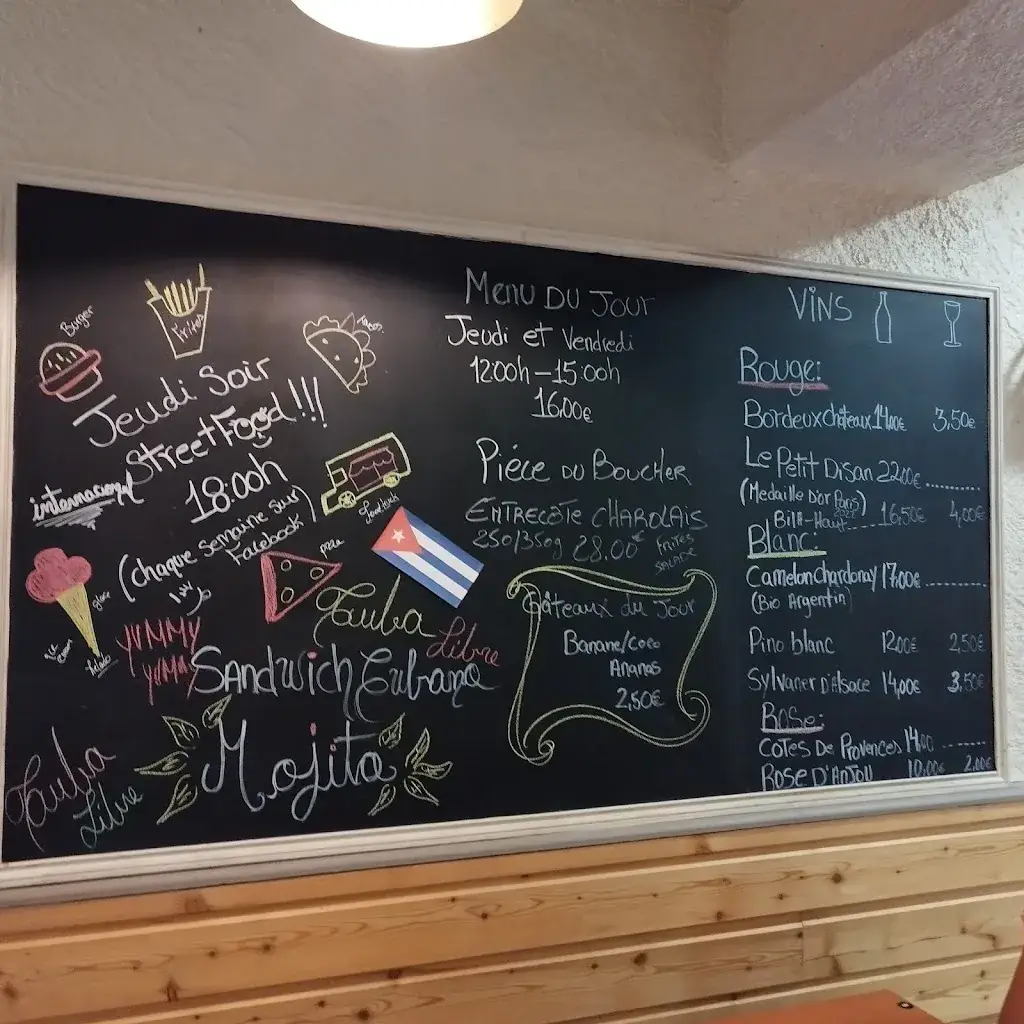 Burger
Frites
Tacos
Jeudi Soir
Street Food!!!
internacional
18:00h
(chaque semaine sur
Facebook)
Foodtruck
pizza
ice cream
helado
YUMMY
YUMMY
Libre
Sandwich Cubano
Mojito
Libre
Menu du Jour
Jeudi et Vendredi
12:00h-15:00h
16,00€
Piéce du Boucher
Entrecôte Charolais
250/350g 28.00€ Frites
Salade
Gâteaux du Jour
Banane/Coco
Ananas
2,50€
Vins
Rouge:
Bordeux chateaux 14,00€ 3,50€
Le Petit Disan 22,00€ ...........
(Medaille D'or Paris)
Bill-Haut 16,50€ 4,00€
Blanc:
Camelon Chardonay 17,00€ ............
(Bio Argentin)
Pino blanc 12,00€ 2,50€
Sylvaner D'Alsace 14,00€ 3,50€
Rose:
Cotes De Provences 14,00 .........
Rose D'Anjou 10,00€ 2,00€